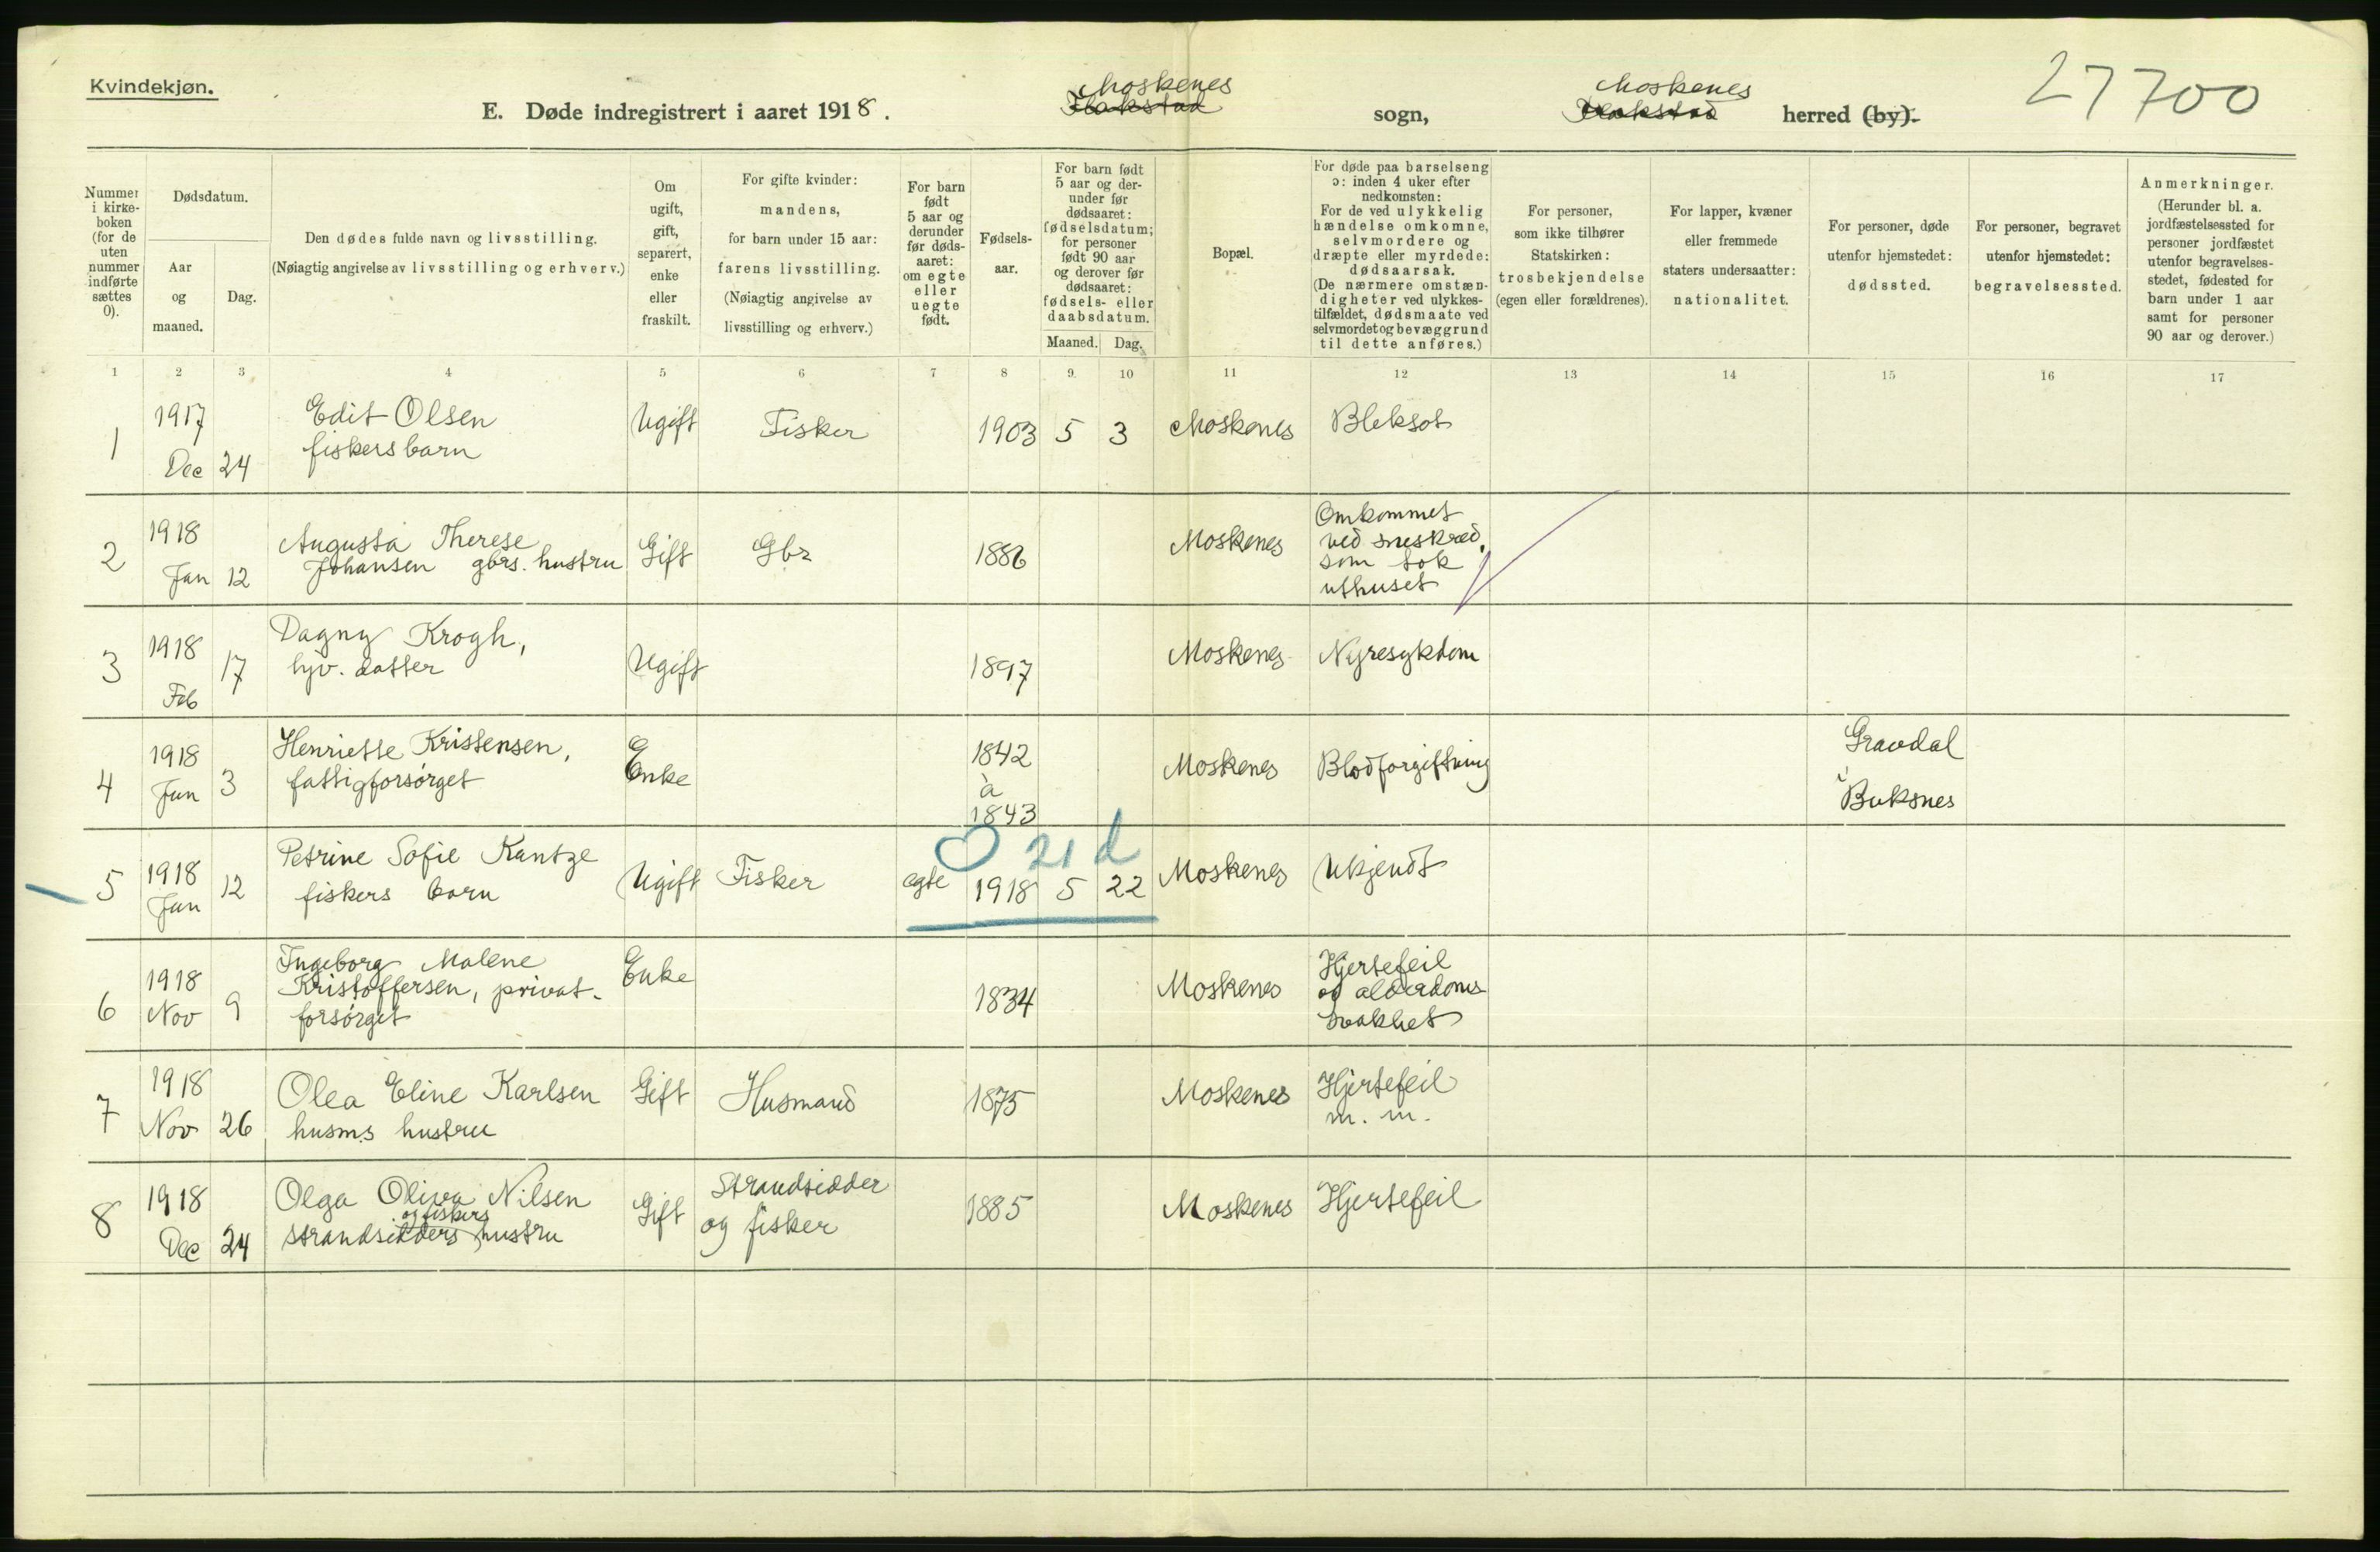 Kvindekjøn.
E. Døde indregistrert i aaret 1918.
Moskenes
Flakstad
sogn,
Moskenes
Flakstad
herred (by).
27700
Nummer i kirke-boken (for de uten nummer indførte sættes 0).
Dødsdatum.
Aar og maaned.
Dag.
Den dødes fulde navn og livsstilling.
(Nøiagtig angivelse av livsstilling og erhverv.)
Om ugift, gift, separert, enke eller fraskilt.
For gifte kvinder: mandens, for barn under 15 aar: farens livsstilling. (Nøiagtig angivelse av livsstilling og erhverv.)
For barn født 5 aar og derunder før døds-aaret: om egte eller uegte født.
Fødsels-aar.
For barn født 5 aar og der-under før dødsaaret: fødselsdatum; for personer født 90 aar og derover før dødsaaret: fødsels- eller daabsdatum.
Maaned.
Dag.
Bopæl.
For døde paa barselseng ɔ: inden 4 uker efter nedkomsten: For de ved ulykkelig hændelse omkomne, selvmordere og dræpte eller myrdede: dødsaarsak. (De nærmere omstæn-digheter ved ulykkes-tilfældet, dødsmaate ved selvmordet og bevæggrund til dette anføres.)
For personer, som ikke tilhører Statskirken: trosbekjendelse (egen eller forældrenes).
For lapper, kvæner eller fremmede staters undersaatter: nationalitet.
For personer, døde utenfor hjemstedet: dødssted.
For personer, begravet utenfor hjemstedet: begravelsessted.
Anmerkninger. (Herunder bl. a. jordfæstelsessted for personer jordfæstet utenfor begravelses-stedet, fødested for barn under 1 aar samt for personer 90 aar og derover.)
1 2 3 4 5 6 7 8 9. 10 11 12 13 14 15 16 17
1 1917 Dec 24 Edit Olsen fiskersbarn Ugift Fisker 1903 5 3 Moskenes Bleksot
2 1918 Jan 12 Augusta Therese Johansen gbrs. hustru Gift Gbr 1886 Moskenes Omkommet ved sneskred, som tok uthuset
3 1918 Feb 17 Dagny Krogh, hjv. datter Ugift 1897 Moskenes Nyresykdom
4 1918 Jun 3 Henriette Kristensen, fattigforsørget Enke 1842 à 1843 Moskenes Blodforgiftning Gravdal i Buksnes
21 d
5 1918 Jun 12 Petrine Sofie Kantze fiskers barn Ugift Fisker egte 1918 5 22 Moskenes Ukjendt
6 1918 Nov 9 Ingeborg Malene Kristoffersen, privat-forsørget Enke 1834 Moskenes Hjertefeil og alderdoms svakhet
7 1918 Nov 26 Olea Eline Karlsen husm.s hustru Gift Husmand 1875 Moskenes Hjertefeil m. m.
8 1918 Dec 24 Olga Oliva Nilsen strandsidders og fiskers hustru Gift Strandsidder og fisker 1885 Moskenes Hjertefeil